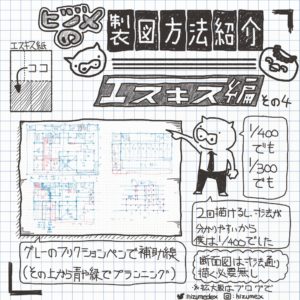 ヒヅメの
製図方法紹介
エスキス編 その4
エスキス紙
ココ
1/400
でも
1/300
でも
2回描けるし、寸法が
分かりやすいから
僕は1/400でした
断面図は寸法通り
描く必要無し
グレーのフリクションペンで補助線
(その上から青や緑でプランニング)
※拡大版はブログで
hizumedex
hizumex